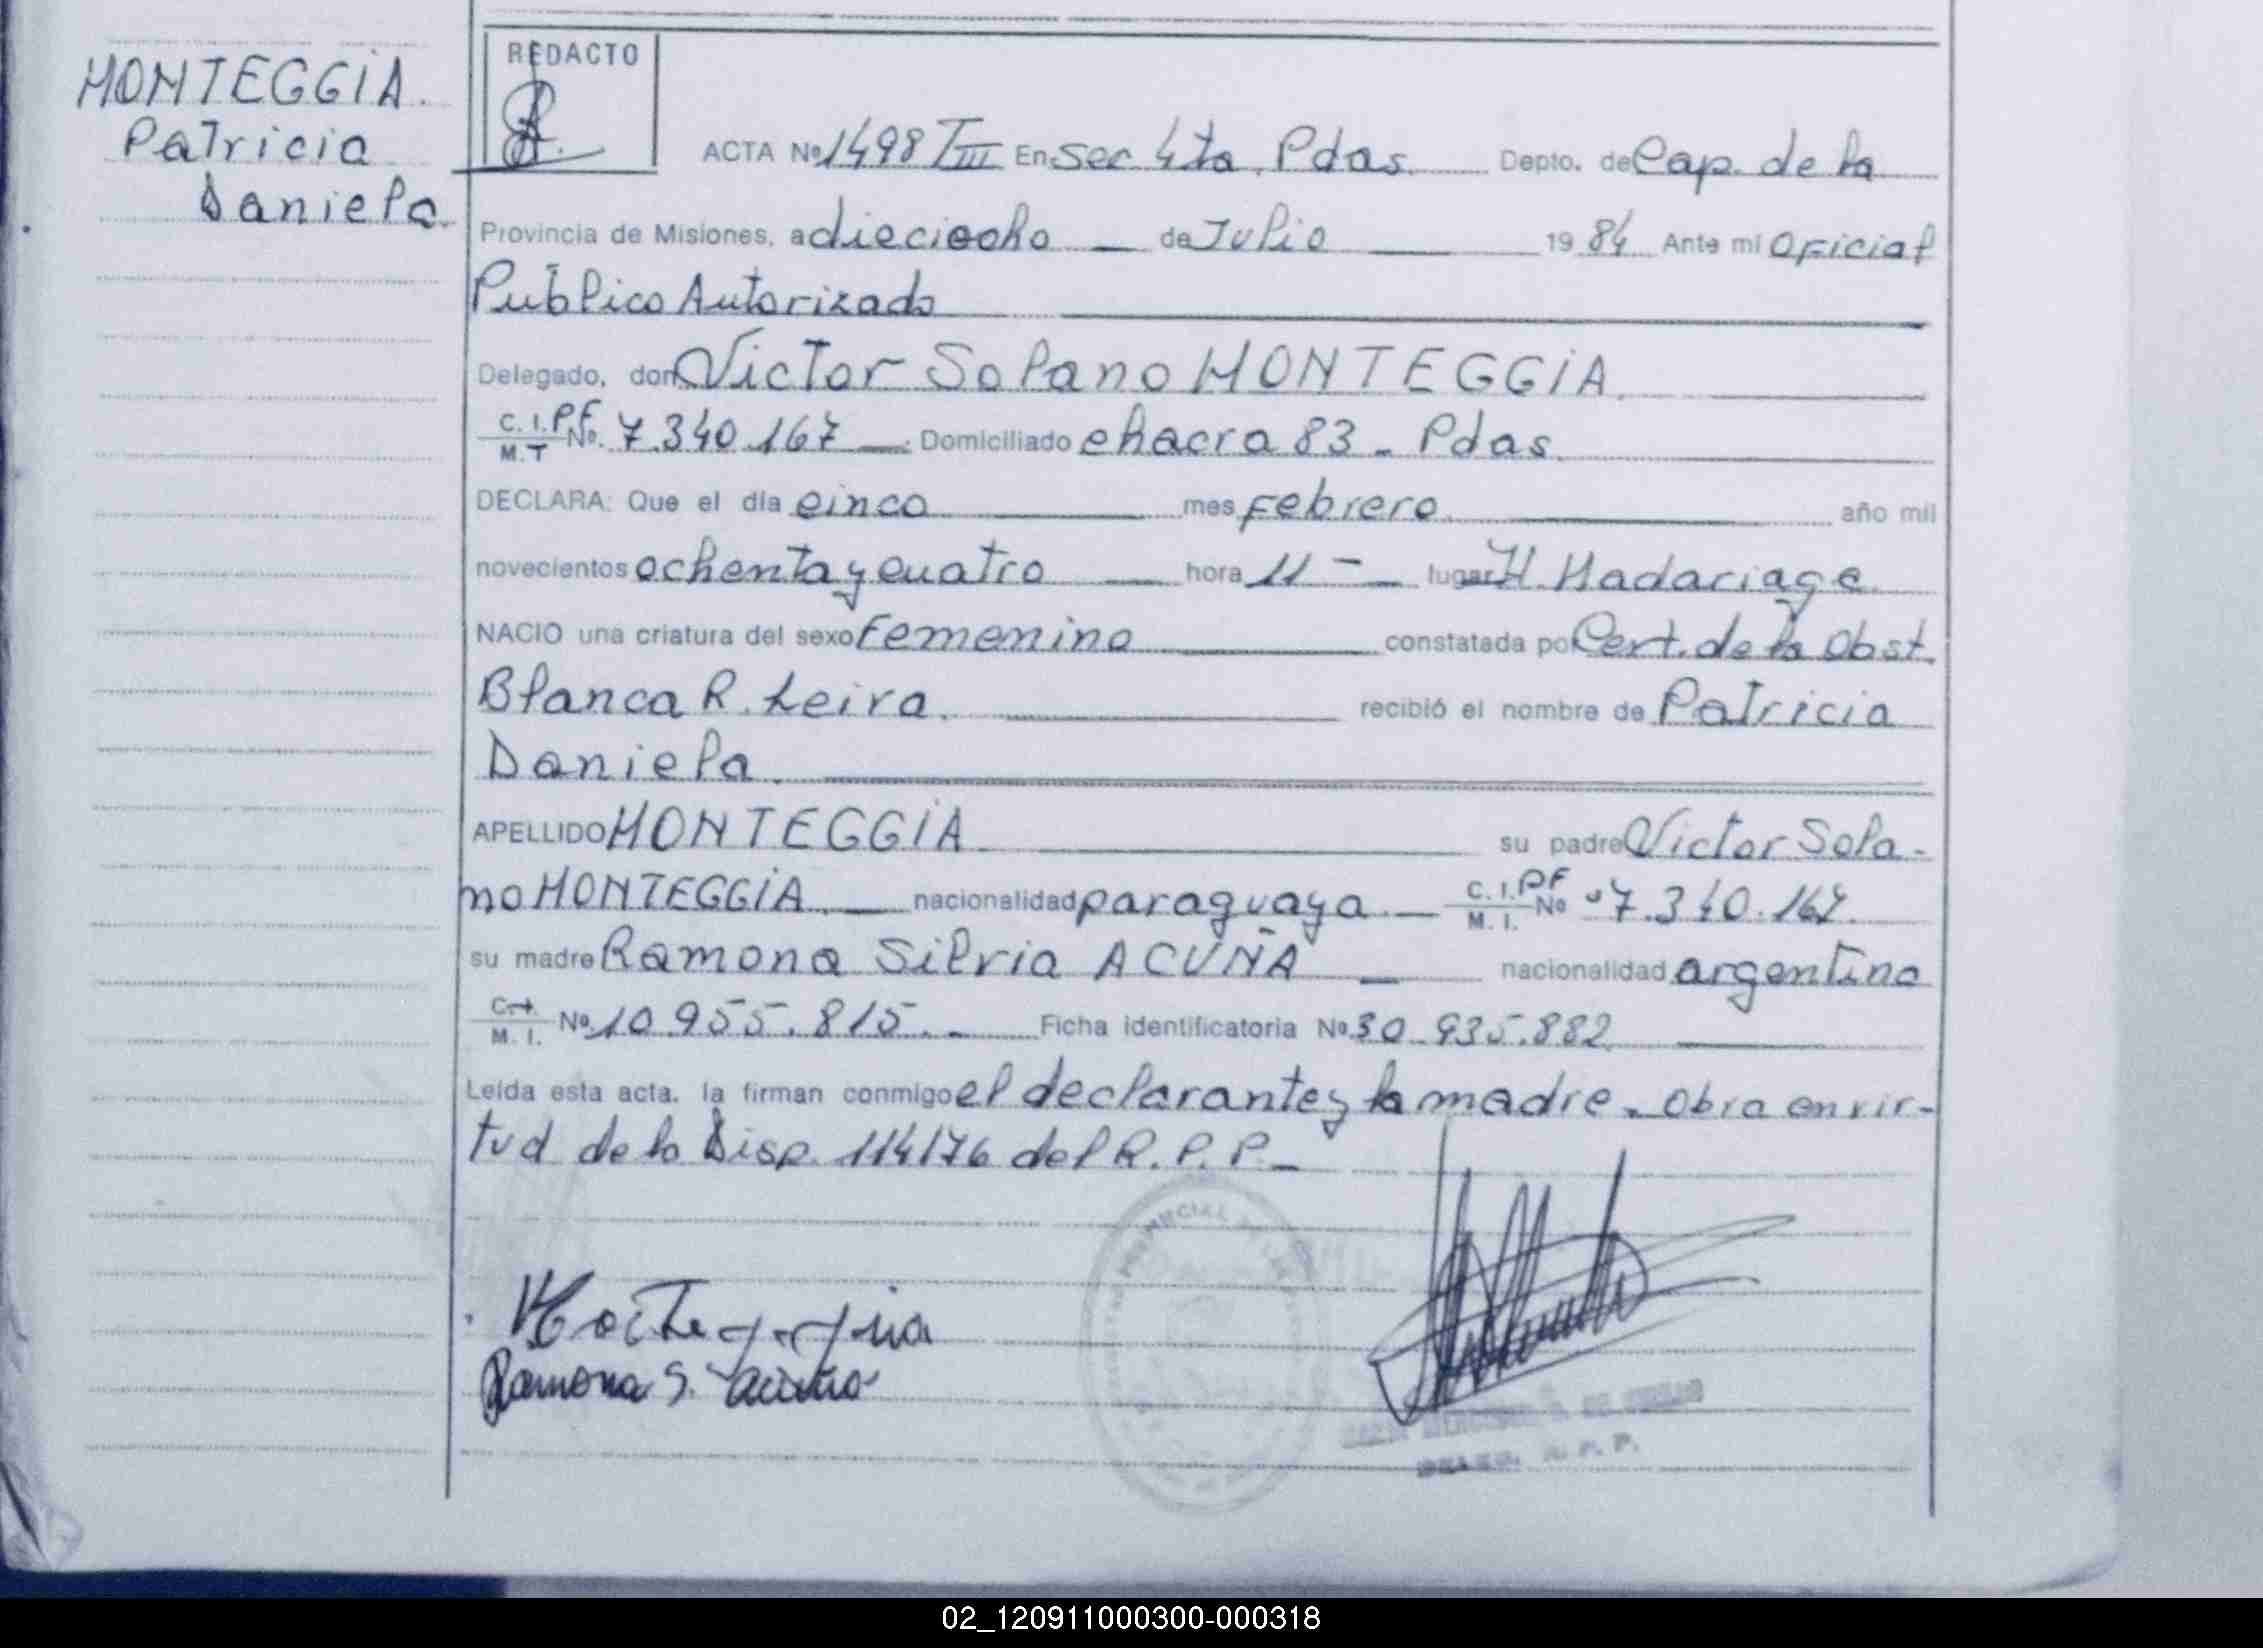 MONTEGGIA.
Patricia
Daniela.
REDACTO
ACTA Nº 1498 TIII En Sec 4ta. Pdas. Depto. de Cap. de la
Provincia de Misiones, a dieciocho de Julio 19 84 Ante mí Oficial
Público Autorizado
Delegado, don Victor Solano MONTEGGIA.
C. I. P.F. Nº. 7.340.167 Domiciliado chacra 83 - Pdas.
M. I.
DECLARA: Que el día cinco mes Febrero año mil
novecientos ochenta y cuatro hora 11 - lugar H. Madariaga
NACIO una criatura del sexo Femenino constatada por Cert. de la Obst.
Blanca R. Leiva. recibió el nombre de Patricia
Daniela.
APELLIDO MONTEGGIA su padre Victor Sola-
no MONTEGGIA. nacionalidad paraguaya. C. I. P.F. Nº 7.340.167.
M. I.
su madre Ramona Silvia ACUÑA nacionalidad argentina
C. I. Nº 10.955.815. Ficha identificatoria Nº 30.935.882
M. I.
Leída esta acta, la firman conmigo el declarante y la madre. Obra en vir-
tud de la Disp. 114/76 del R. P. P. -
Monteggia
Ramona S. Acuña
R. P. P.
02_120911000300-000318